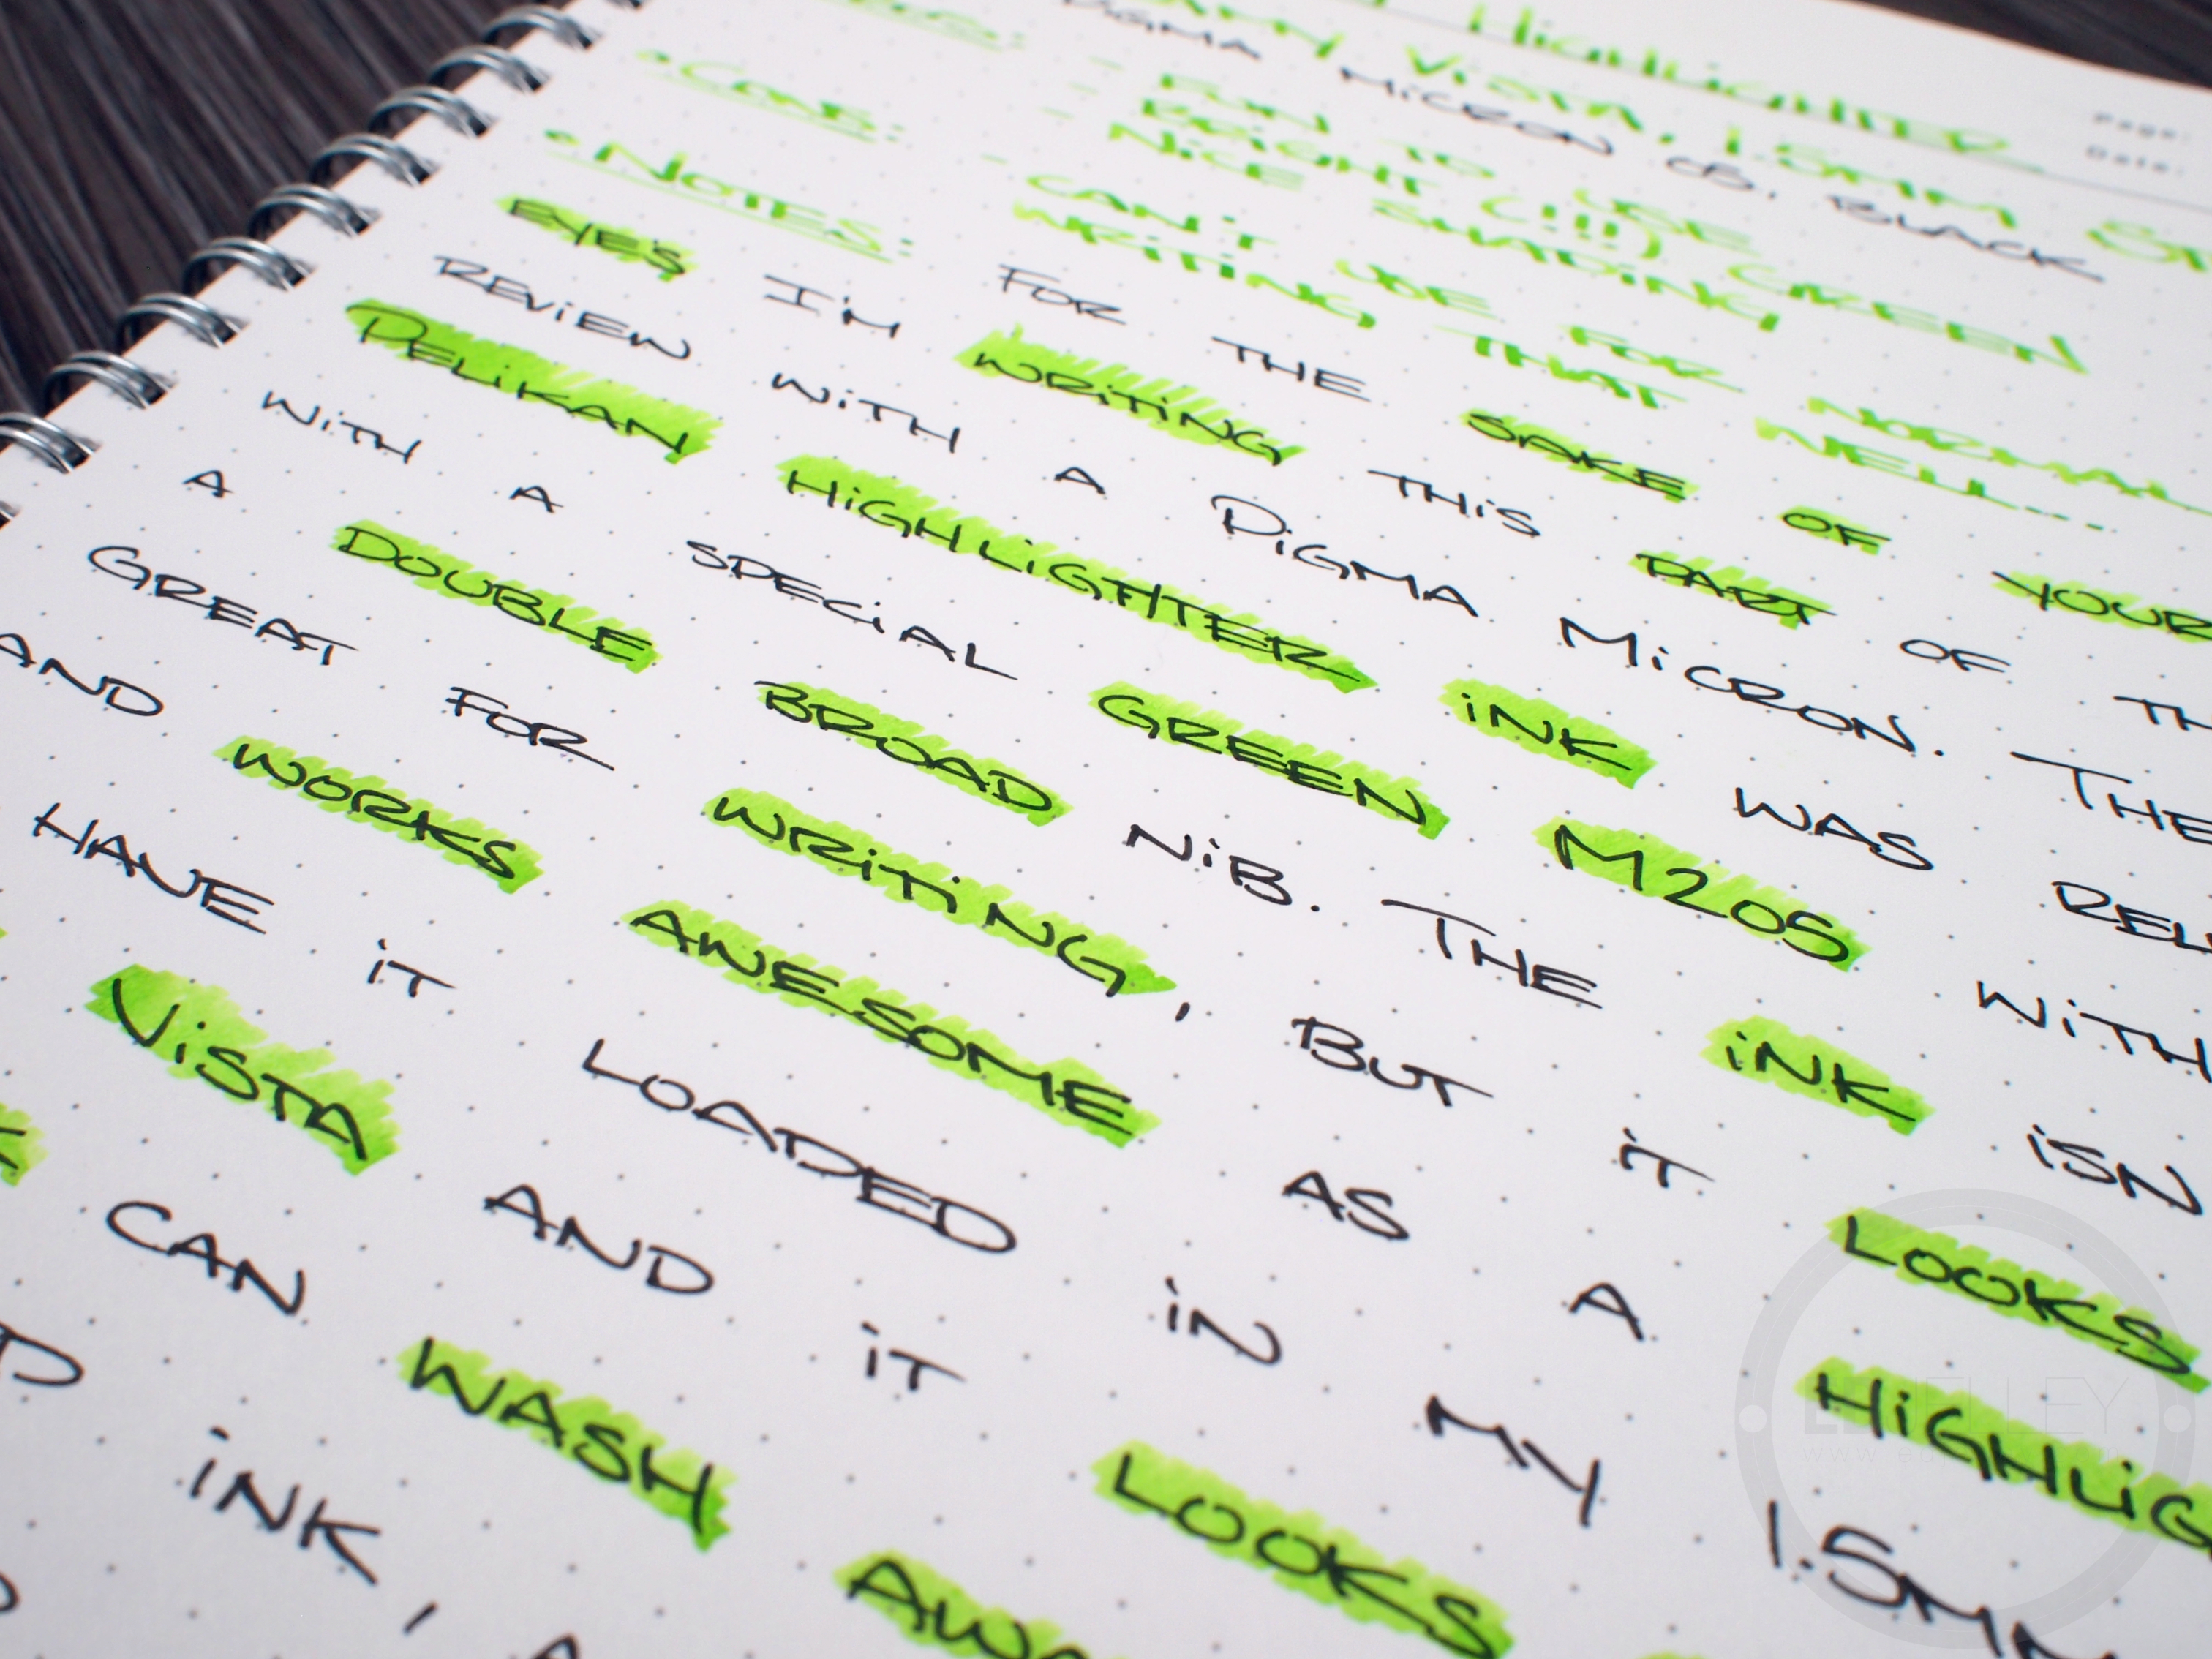 Page:
Date:
HIGHLIGHTER
VISTA, 1.5MM
MICRON 05, BLACK
FUN TO USE
BRIGHT (!!!) GREEN
NICE SHADING
• CONS: - CAN'T USE FOR NORMAL
WRITING THAT WELL....
• NOTES: FOR THE SAKE OF YOUR
EYES I'M WRITING THIS PART OF TH
REVIEW WITH A DIGMA MICRON. THE
PELIKAN HIGHLIGTHER INK WAS REL
WITH A SPECIAL GREEN M205 WITH
A DOUBLE BROAD NIB. THE INK ISN
GREAT FOR WRITING, BUT IT LOOKS
AND WORKS AWESOME AS A HIGHLIG
HAVE IT LOADED IN MY 1.5MM
VISTA AND IT LOOKS
CAN WASH AWA
INK,